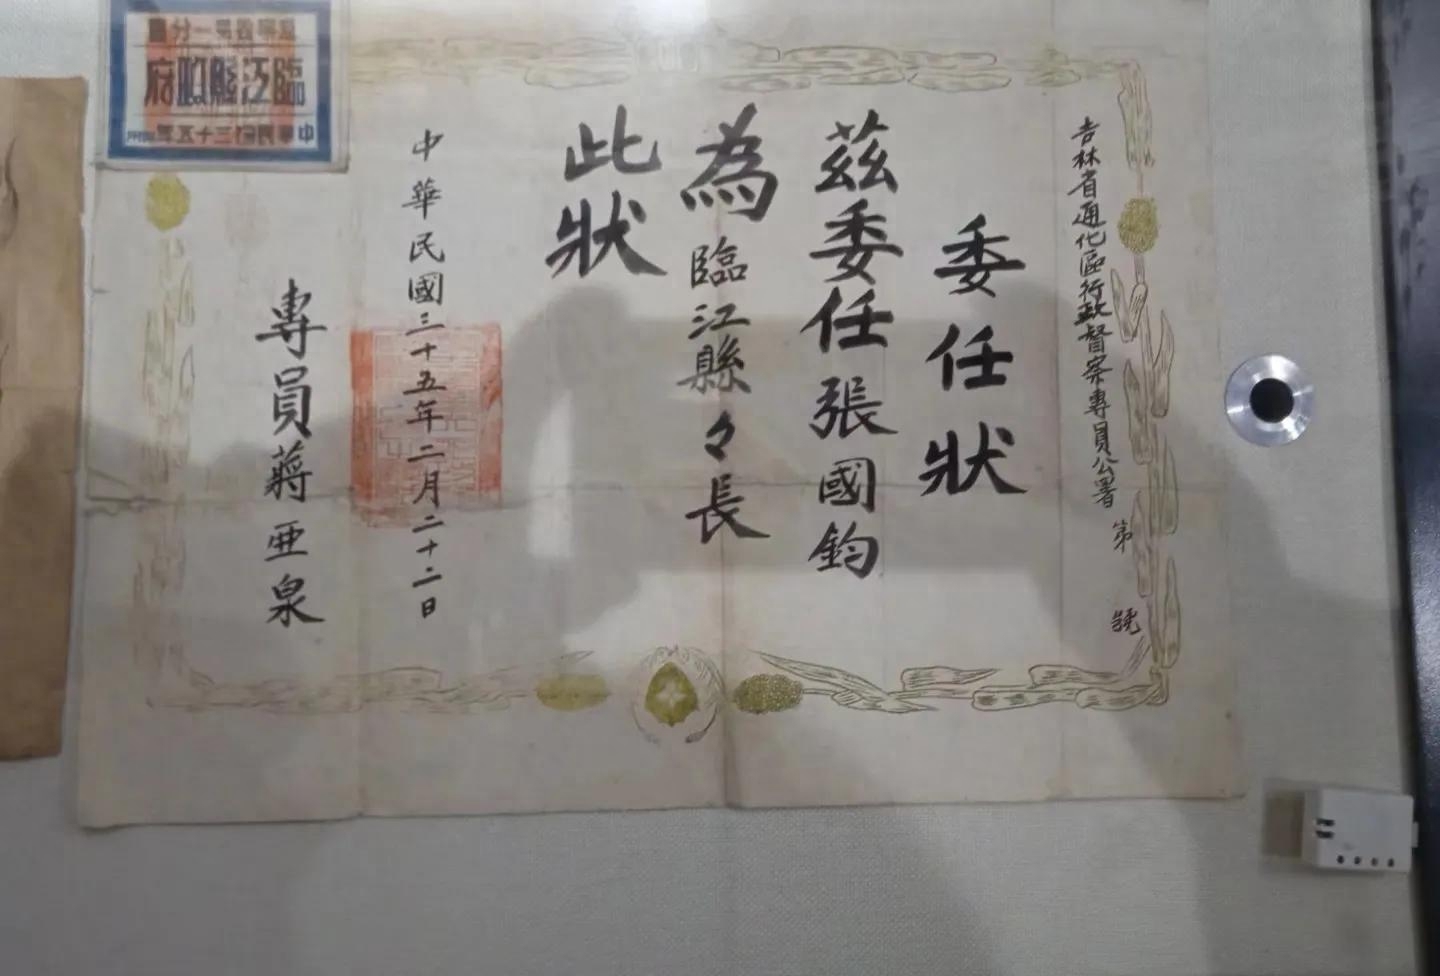 吉林省通化區行政督察專員公署 第 號
委任狀
茲委任張國鈞
為臨江縣々長
此狀
中華民國三十五年二月二十二日
專員蔣亜泉
臨江縣政府
中華民國三十五年